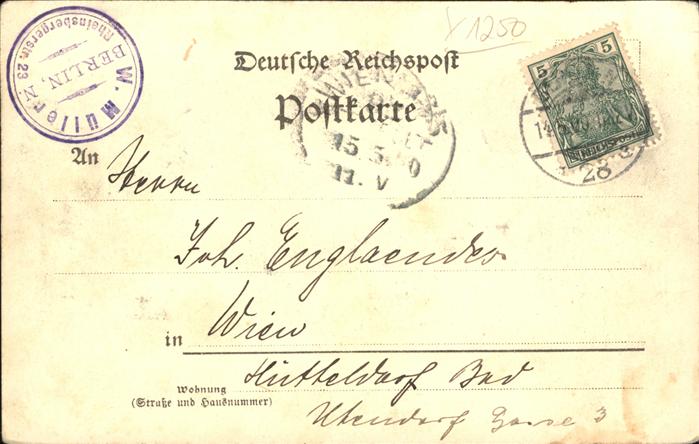 W. Müller N.
BERLIN
Rheinsbergerstr. 23
1250
Deutsche Reichspost
Postkarte
WIEN
15.5.
11.V
5 5
REICHSPOST
28
An Herrn
Joh. Englaender
in Wien
Wohnung
(Straße und Hausnummer)
Hütteldorf Bad
Utendorf Gasse 3